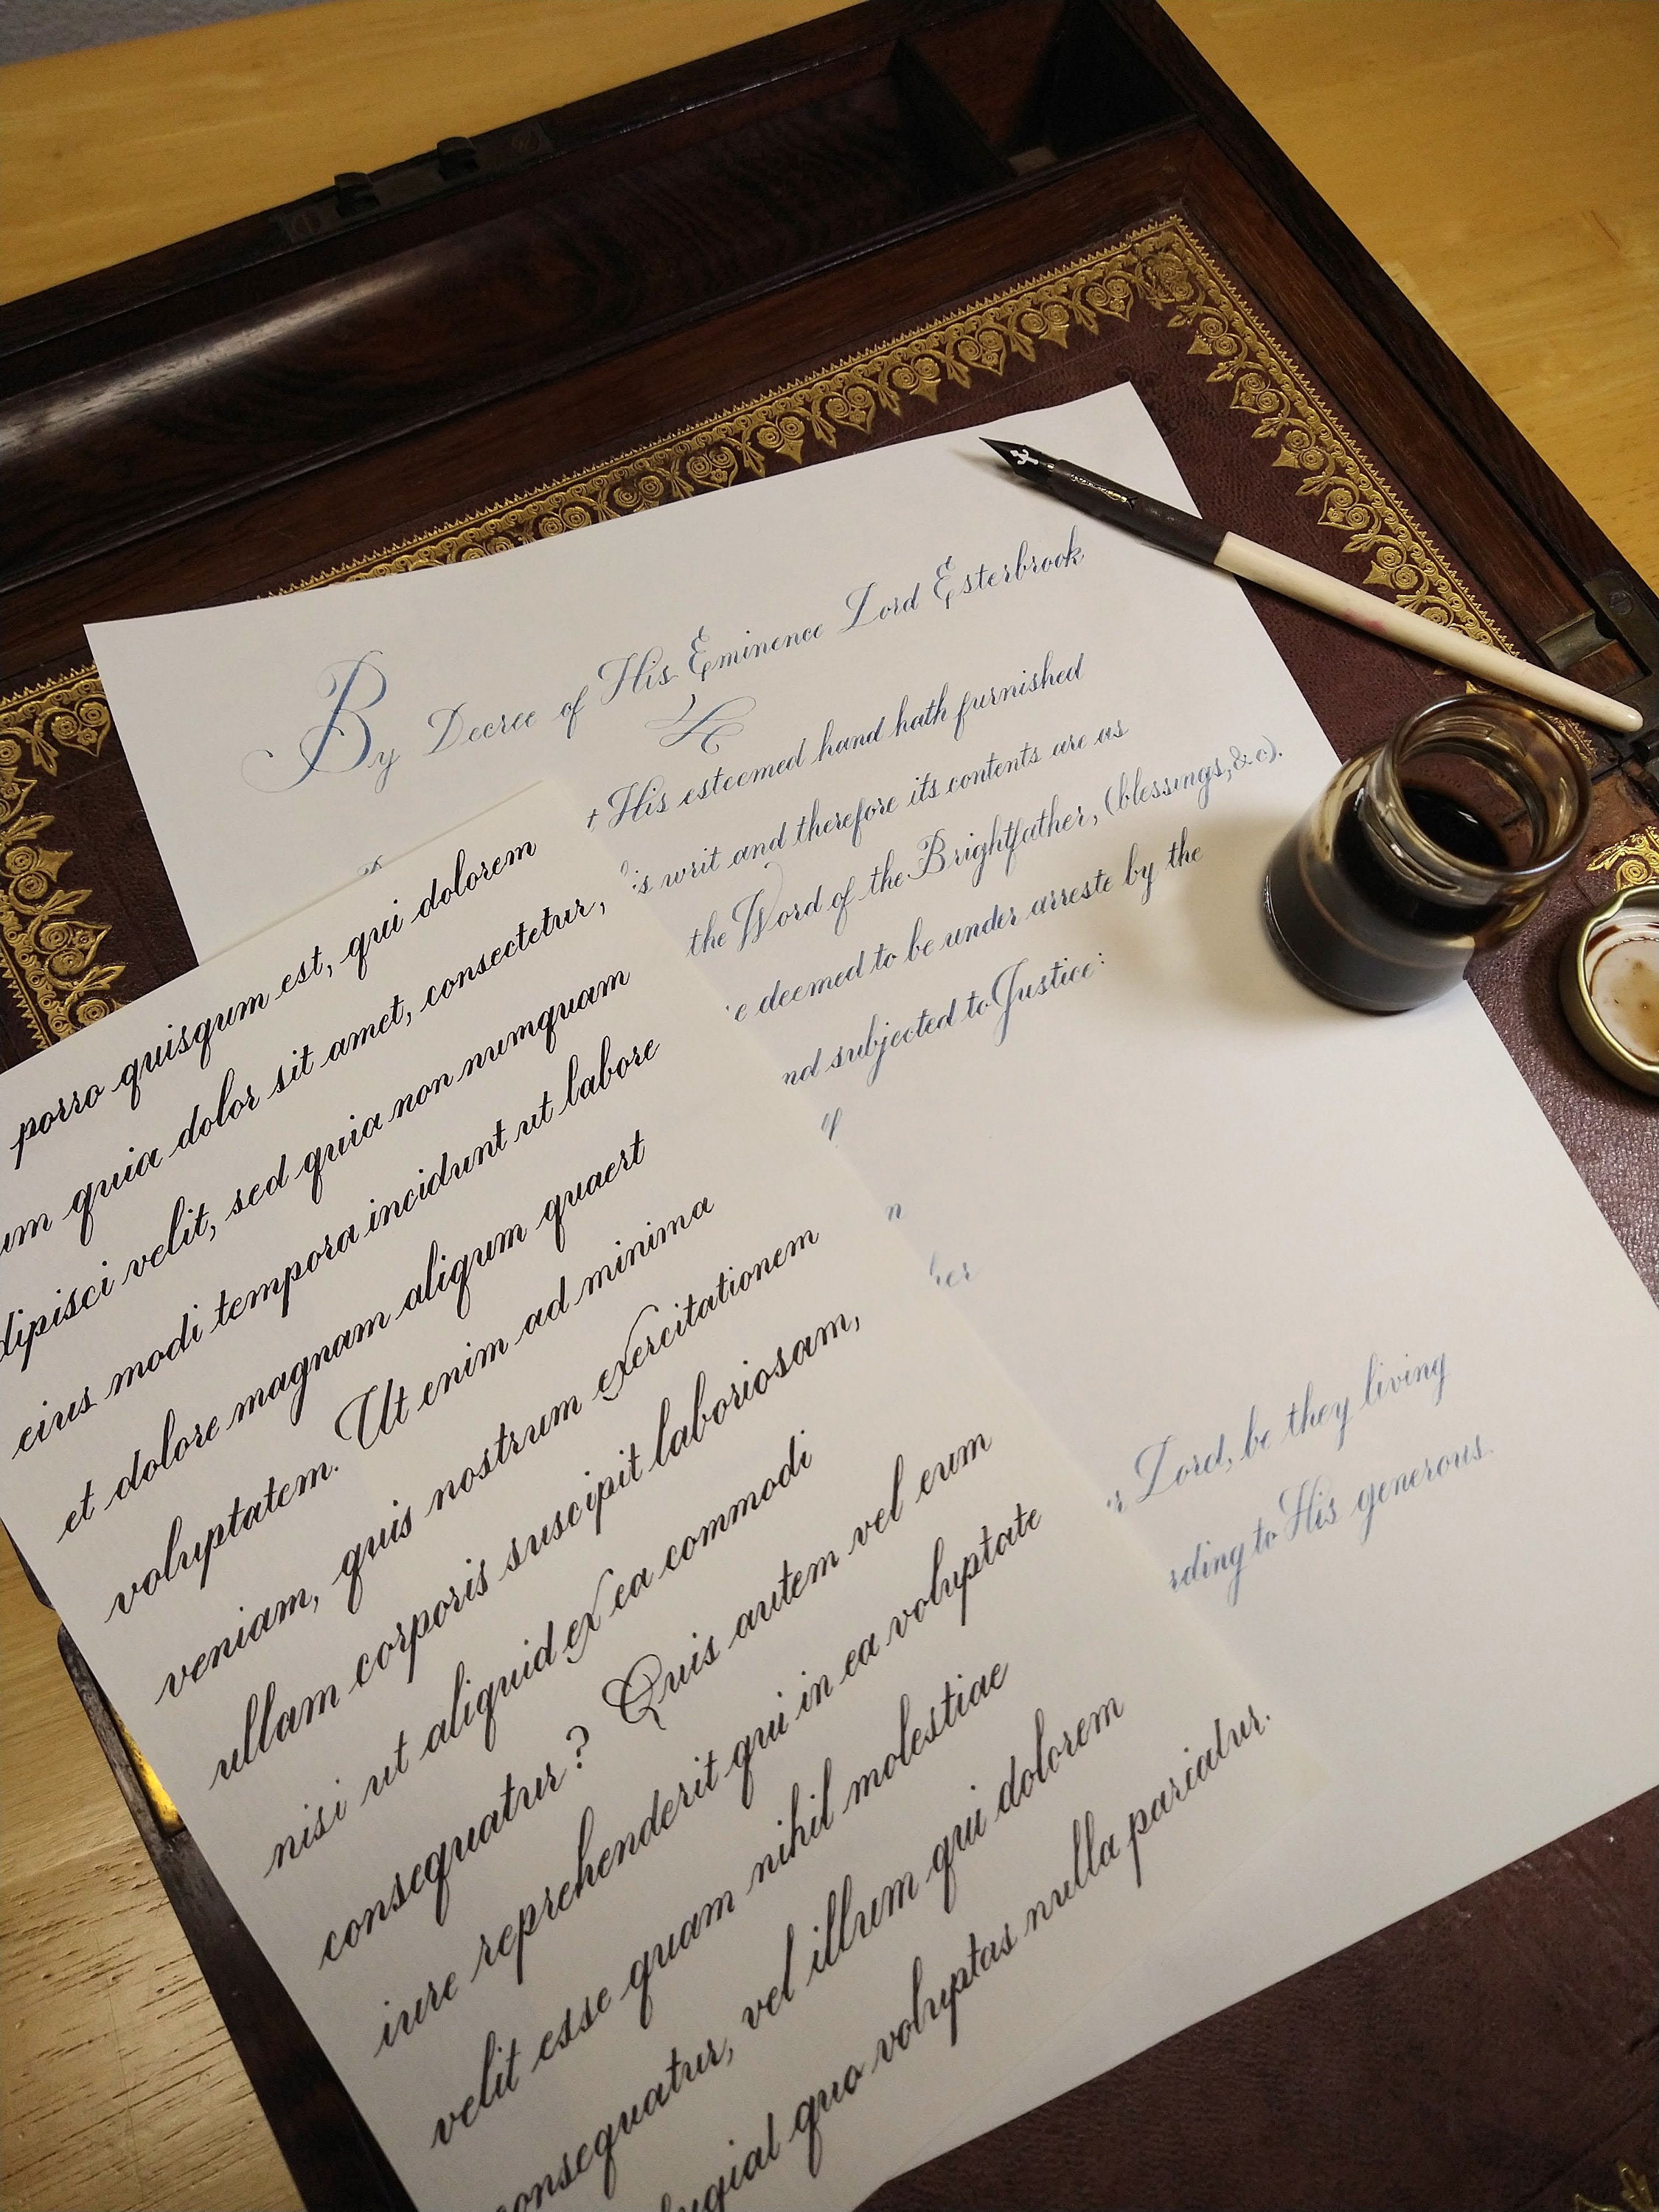 By Decree of His Eminence Lord Esterbrook
His esteemed hand hath furnished
writ and therefore its contents are as
the Word of the Brightfather, (blessings, &c).
deemed to be under arreste by the
subjected to Justice:
Lord, be they living
to His generous.
porro quisqum est, qui dolorem
quia dolor sit amet, consectetur,
velit, sed quia non numquam
eius modi tempora incidunt ut labore
et dolore magnam aliqum quaert
voluptatem. Ut enim ad minima
veniam, quis nostrum exercitationem
ullam corporis suscipit laboriosam,
nisi ut aliquid ex ea commodi
consequatur? Quis autem vel eum
iure reprehenderit qui in ea voluptate
velit esse quam nihil molestiae
consequatur, vel illum qui dolorem
quo voluptas nulla pariatur.